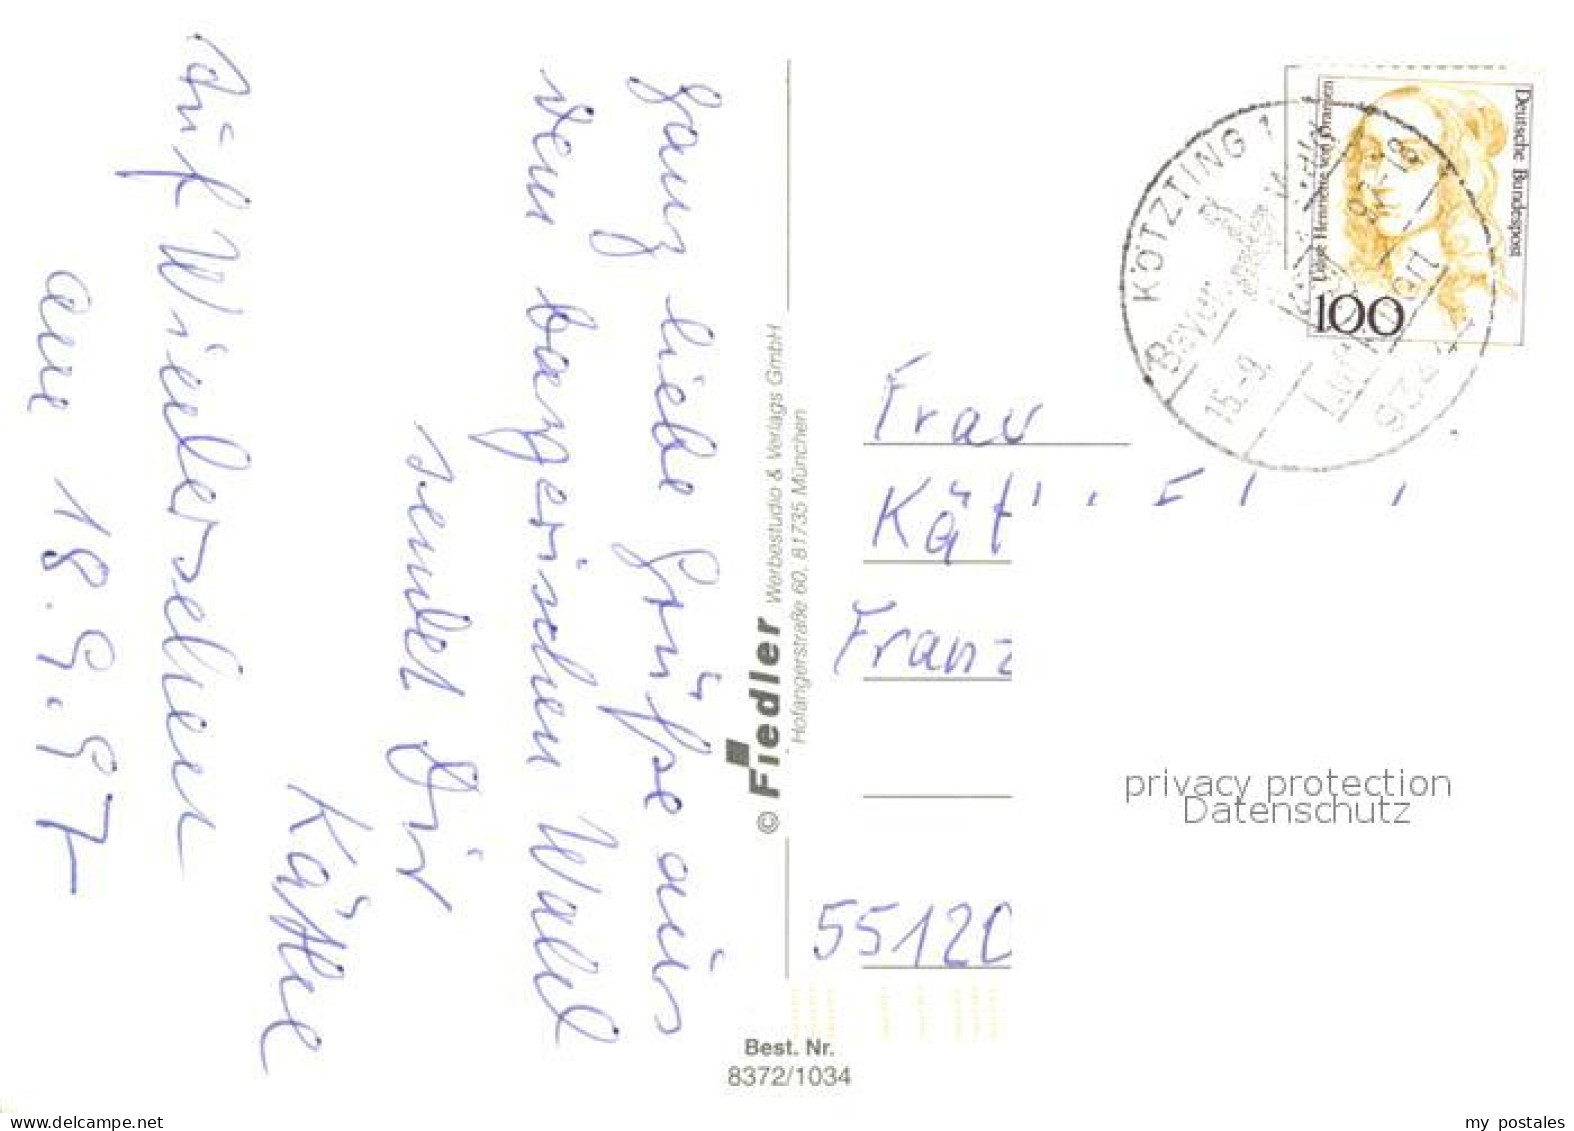 Ganz liebe Grüße aus
dem bayerischen Wald
sendet Dir
Käthe
Auf Wiedersehen
am 18.9.97
© Fiedler Werbestudio & Verlags GmbH
Hofangerstraße 60, 81735 München
Best. Nr.
8372/1034
Deutsche Bundespost
Luise Henriette von Oranien
100
KÖTZTING 1
15.-9.
93444
Frau
Franz
5512
privacy protection
Datenschutz
www.delcampe.net
my postales